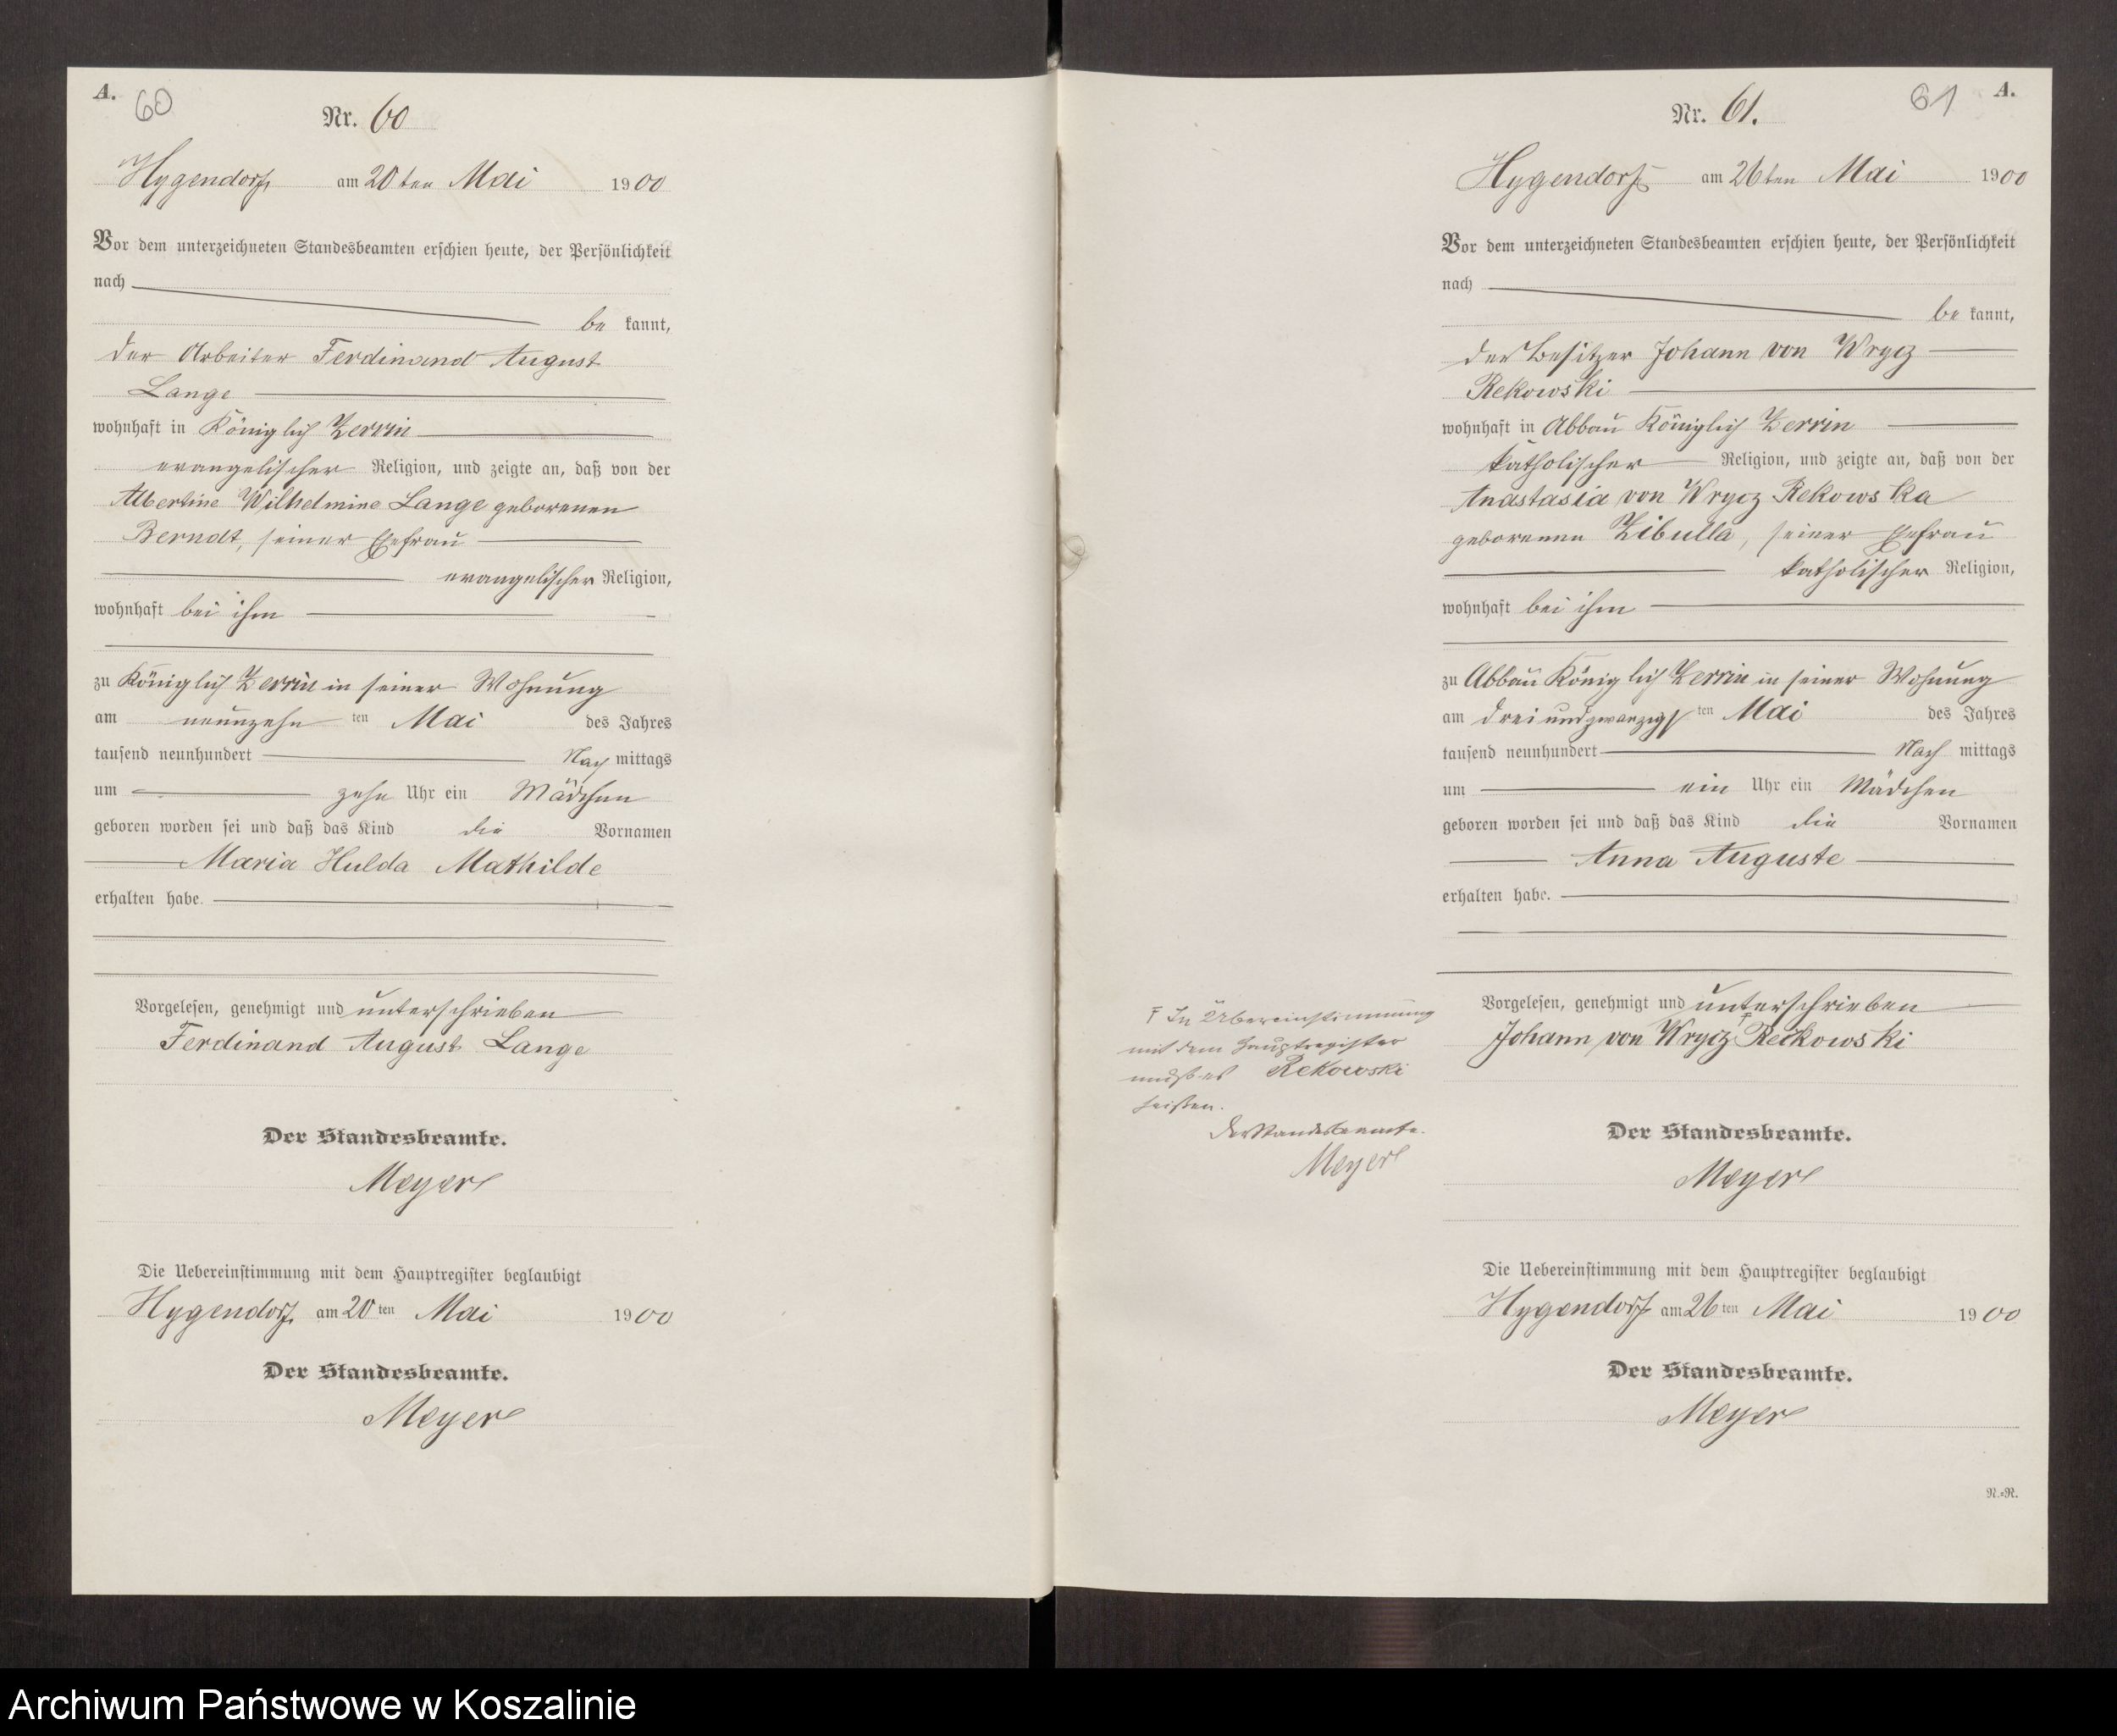 A.
60
Nr. 60
Hygendorf, am 20ten Mai 1900
Vor dem unterzeichneten Standesbeamten erschien heute, der Persönlichkeit
nach
be kannt,
der Arbeiter Ferdinand August
Lange
wohnhaft in Königlich Zerrin
evangelischer Religion, und zeigte an, daß von der
Albertine Wilhelmine Lange geborenen
Berndt, seiner Ehefrau
evangelischer Religion,
wohnhaft bei ihm
zu Königlich Zerrin in seiner Wohnung
am neunzehn ten Mai des Jahres
tausend neunhundert Nach mittags
um zehn Uhr ein Mädchen
geboren worden sei und daß das Kind die Vornamen
Maria Hulda Mathilde
erhalten habe.
Vorgelesen, genehmigt und unterschrieben
Ferdinand August Lange
Der Standesbeamte.
Meyer
Die Uebereinstimmung mit dem Hauptregister beglaubigt
Hygendorf, am 20 ten Mai 1900
Der Standesbeamte.
Meyer
61
A.
Nr. 61.
Hygendorf am 26ten Mai 1900
Vor dem unterzeichneten Standesbeamten erschien heute, der Persönlichkeit
nach
be kannt,
der Besitzer Johann von Wrycz
Rekowski
wohnhaft in Abbau Königlich Zerrin
katholischer Religion, und zeigte an, daß von der
Anastasia von Wrycz Rekowska
geborenen Zibulla, seiner Ehefrau
katholischer Religion,
wohnhaft bei ihm
zu Abbau Königlich Zerrin in seiner Wohnung
am dreiundzwanzigs ten Mai des Jahres
tausend neunhundert Nach mittags
um ein Uhr ein Mädchen
geboren worden sei und daß das Kind die Vornamen
Anna Auguste
erhalten habe.
Vorgelesen, genehmigt und unterschrieben
Johann von Wrycz Reckowski
Der Standesbeamte.
Meyer
Die Uebereinstimmung mit dem Hauptregister beglaubigt
Hygendorf am 26 ten Mai 1900
Der Standesbeamte.
Meyer
N.=R.
In Übereinstimmung
mit dem Hauptregister
muß es Rekowski
heißen.
Der Standesbeamte.
Meyer
Archiwum Państwowe w Koszalinie